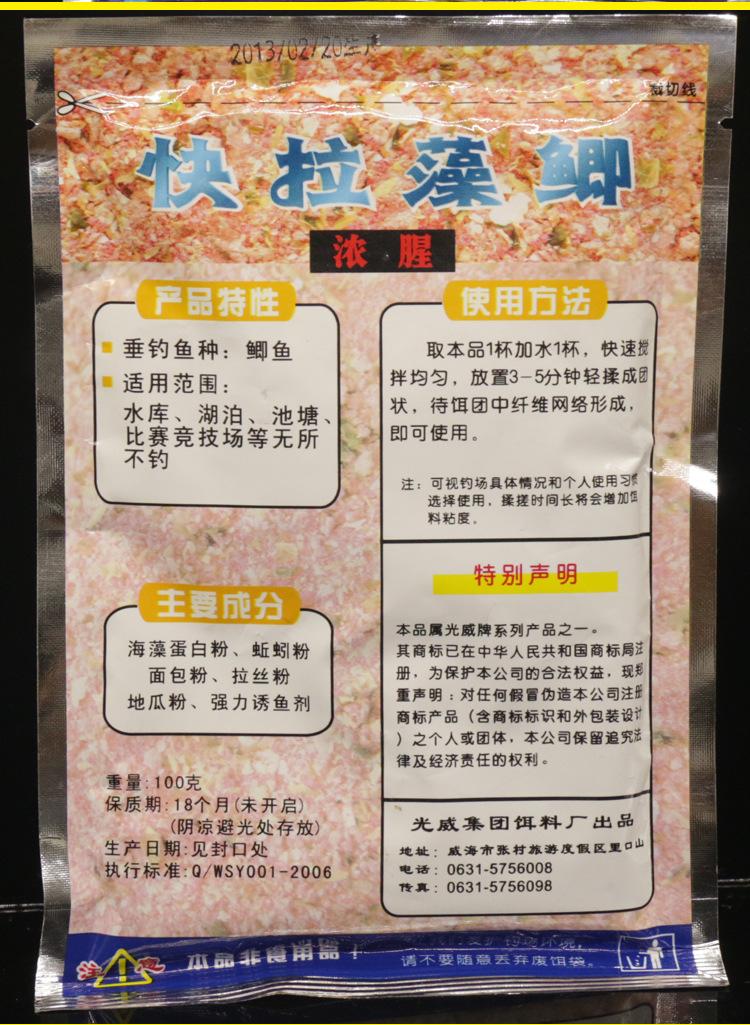 2013/02/20生产
裁切线
快拉藻鲫
浓腥
产品特性
垂钓鱼种：鲫鱼
适用范围：
水库、湖泊、池塘、
比赛竞技场等无所
不钓
主要成分
海藻蛋白粉、蚯蚓粉
面包粉、拉丝粉
地瓜粉、强力诱鱼剂
重量:100克
保质期:18个月(未开启)
(阴凉避光处存放)
生产日期:见封口处
执行标准:Q/WSY001-2006
使用方法
取本品1杯加水1杯，快速搅
拌均匀，放置3-5分钟轻揉成团
状，待饵团中纤维网络形成，
即可使用。
注：可视钓场具体情况和个人使用习惯
选择使用，揉搓时间长将会增加饵
料粘度。
特别声明
本品属光威牌系列产品之一。
其商标已在中华人民共和国商标局注
册，为保护本公司的合法权益，现郑
重声明：对任何假冒伪造本公司注册
商标产品（含商标标识和外包装设计
）之个人或团体，本公司保留追究法
律及经济责任的权利。
光威集团饵料厂出品
地址：威海市张村旅游度假区里口山
电话：0631-5756008
传真：0631-5756098
注意
本品非食用品！
护钓场环境，
请不要随意丢弃废饵袋。